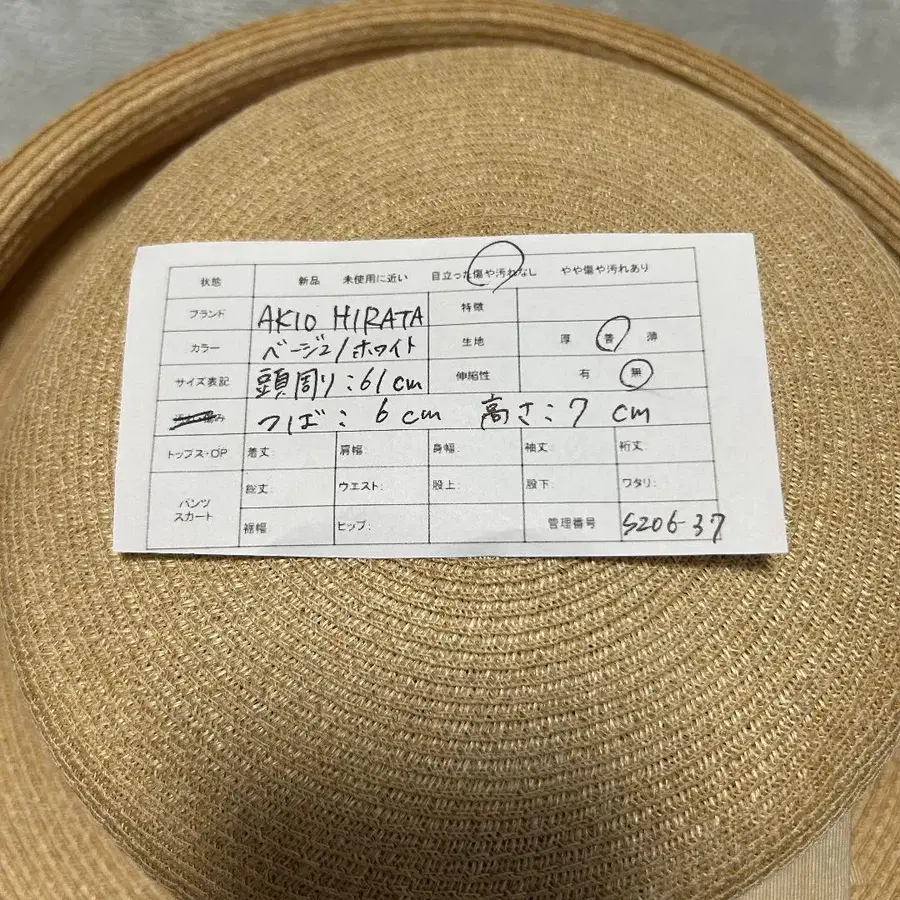 状態 新品 未使用に近い 目立った傷や汚れなし やや傷や汚れあり
ブランド AKIO HIRATA 特徴
カラー ベージュ/ホワイト 生地 厚 普 薄
サイズ表記 頭周り:61cm 伸縮性 有 無
つば: 6cm 高さ:7 cm
トップス・OP 着丈: 肩幅: 身幅: 袖丈: 裄丈:
パンツ
スカート
総丈: ウエスト: 股上: 股下: ワタリ:
裾幅: ヒップ: 管理番号 S206-37